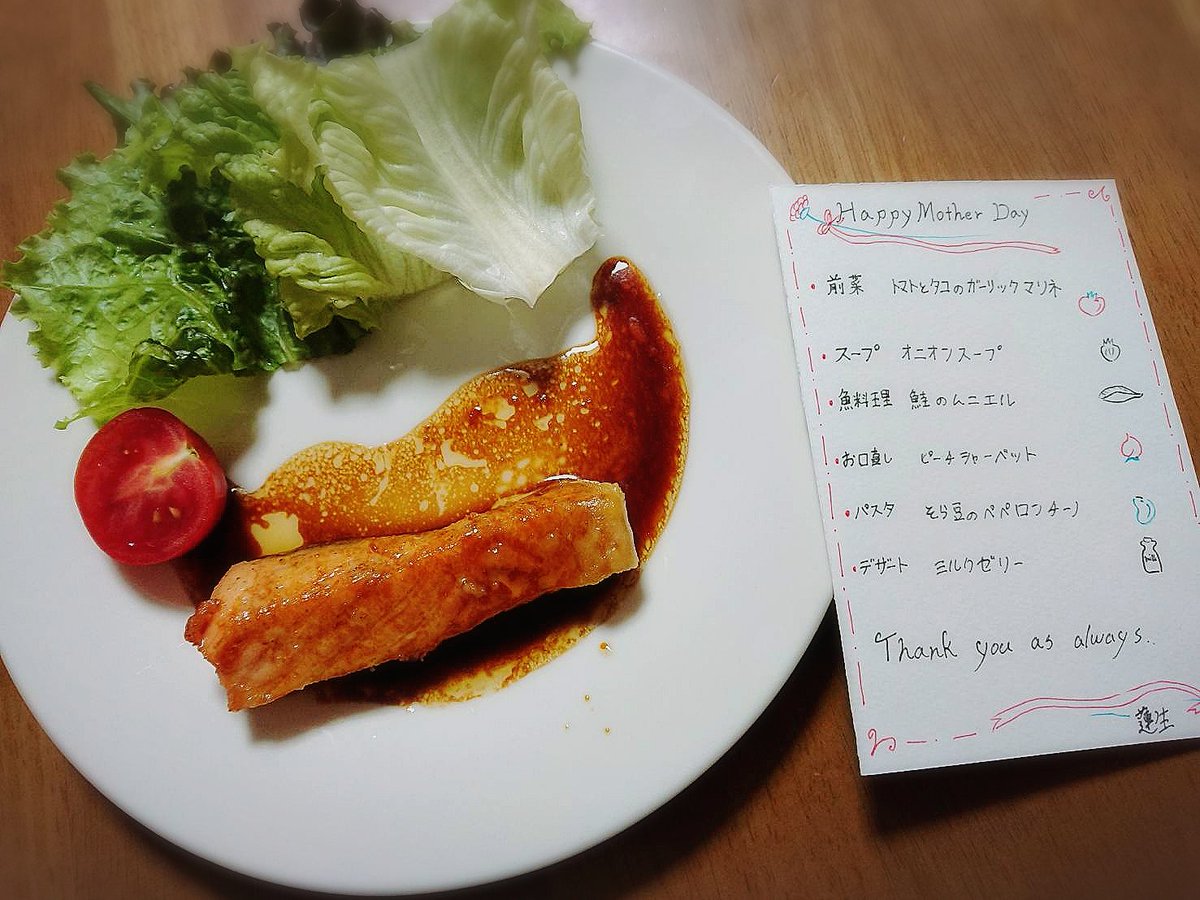 Happy Mother Day
・前菜 トマトとタコのガーリックマリネ
・スープ オニオンスープ
・魚料理 鮭のムニエル
・お口直し ピーチシャーベット
・パスタ そら豆のペペロンチーノ
・デザート ミルクゼリー
Thank you as always.
蓮生